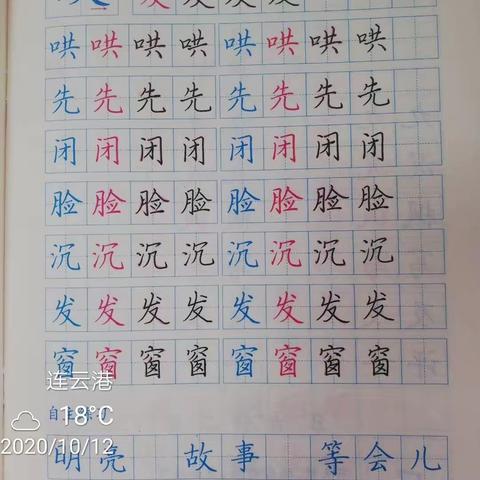 哄哄哄哄哄哄哄哄
先先先先先先先先
闭闭闭闭闭闭闭闭
脸脸脸脸脸脸脸脸
沉沉沉沉沉沉沉沉
发发发发发发发发
窗窗窗窗窗窗窗窗
连云港
18°C
2020/10/12
明亮 故事 等会儿